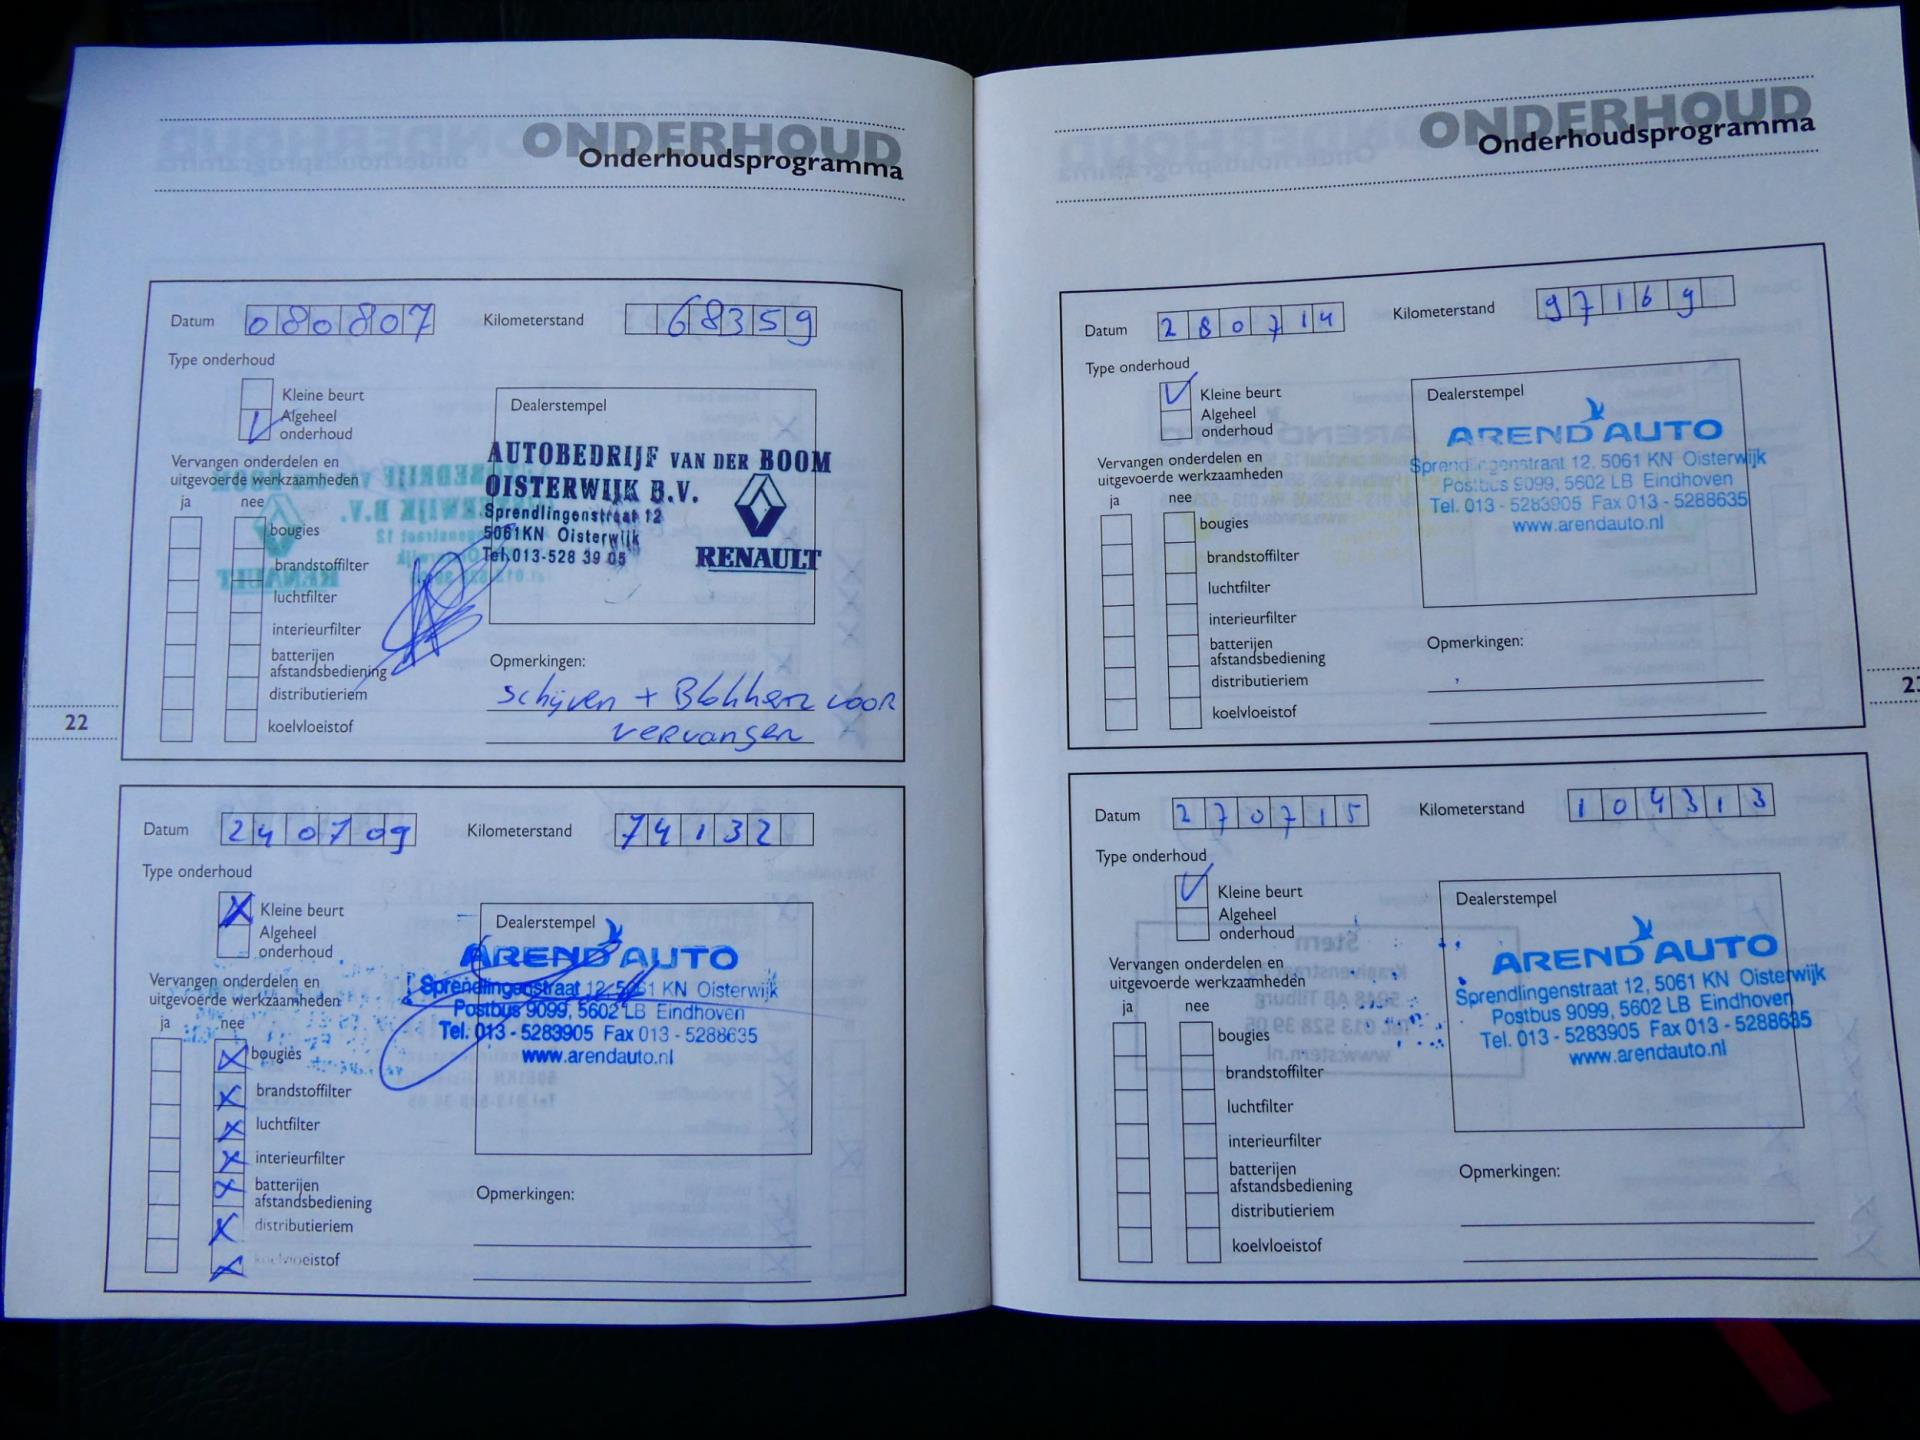 ONDERHOUD
Onderhoudsprogramma
Datum 080807 Kilometerstand 68359
Type onderhoud
Kleine beurt
Algeheel
onderhoud
Dealerstempel
Vervangen onderdelen en
uitgevoerde werkzaamheden
ja nee
AUTOBEDRIJF VAN DER BOOM
OISTERWIJK B.V.
Sprendlingenstraat 12
5061KN Oisterwijk
Tel.013-528 39 05
RENAULT
bougies
brandstoffilter
luchtfilter
interieurfilter
batterijen
afstandsbediening
distributieriem
koelvloeistof
Opmerkingen:
schijven + Blokken voor
vervangen
22
Datum 240709 Kilometerstand 74132
Type onderhoud
Kleine beurt
Algeheel
onderhoud
Dealerstempel
Vervangen onderdelen en
uitgevoerde werkzaamheden
ja nee
AREND AUTO
Sprendlingenstraat 12, 5061 KN Oisterwijk
Postbus 9099, 5602 LB Eindhoven
Tel. 013 - 5283905 Fax 013 - 5288635
www.arendauto.nl
bougies
brandstoffilter
luchtfilter
interieurfilter
batterijen
afstandsbediening
distributieriem
koelvloeistof
Opmerkingen:
ONDERHOUD
Onderhoudsprogramma
Datum 280714 Kilometerstand 97169
Type onderhoud
Kleine beurt
Algeheel
onderhoud
Dealerstempel
Vervangen onderdelen en
uitgevoerde werkzaamheden
ja nee
AREND AUTO
Sprendlingenstraat 12, 5061 KN Oisterwijk
Postbus 9099, 5602 LB Eindhoven
Tel. 013 - 5283905 Fax 013 - 5288635
www.arendauto.nl
bougies
brandstoffilter
luchtfilter
interieurfilter
batterijen
afstandsbediening
distributieriem
koelvloeistof
Opmerkingen:
Datum 270715 Kilometerstand 104313
Type onderhoud
Kleine beurt
Algeheel
onderhoud
Dealerstempel
Vervangen onderdelen en
uitgevoerde werkzaamheden
ja nee
AREND AUTO
Sprendlingenstraat 12, 5061 KN Oisterwijk
Postbus 9099, 5602 LB Eindhoven
Tel. 013 - 5283905 Fax 013 - 5288635
www.arendauto.nl
bougies
brandstoffilter
luchtfilter
interieurfilter
batterijen
afstandsbediening
distributieriem
koelvloeistof
Opmerkingen: